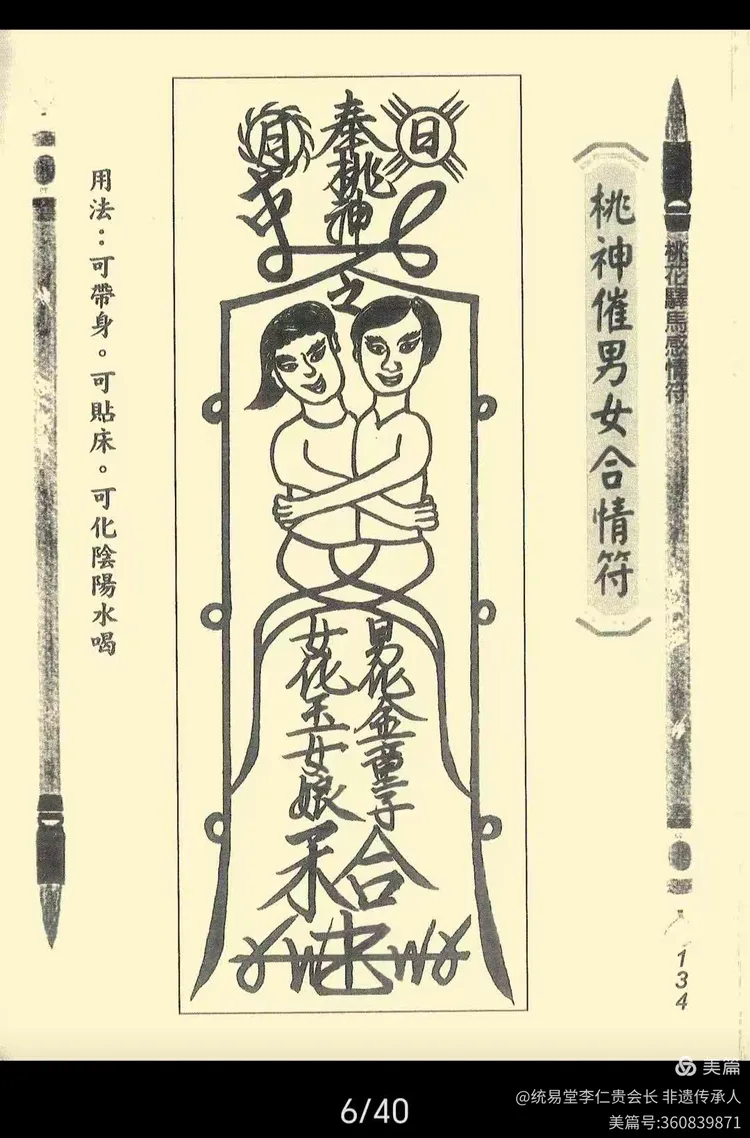 桃花驛馬感情符
134
桃神催男女合情符
日
奉桃神
月
之
男化金童子
女化玉女娘
合
用法：可帶身。可貼床。可化陰陽水喝
美篇
@统易堂李仁贵会长 非遗传承人
美篇号:360839871
6/40